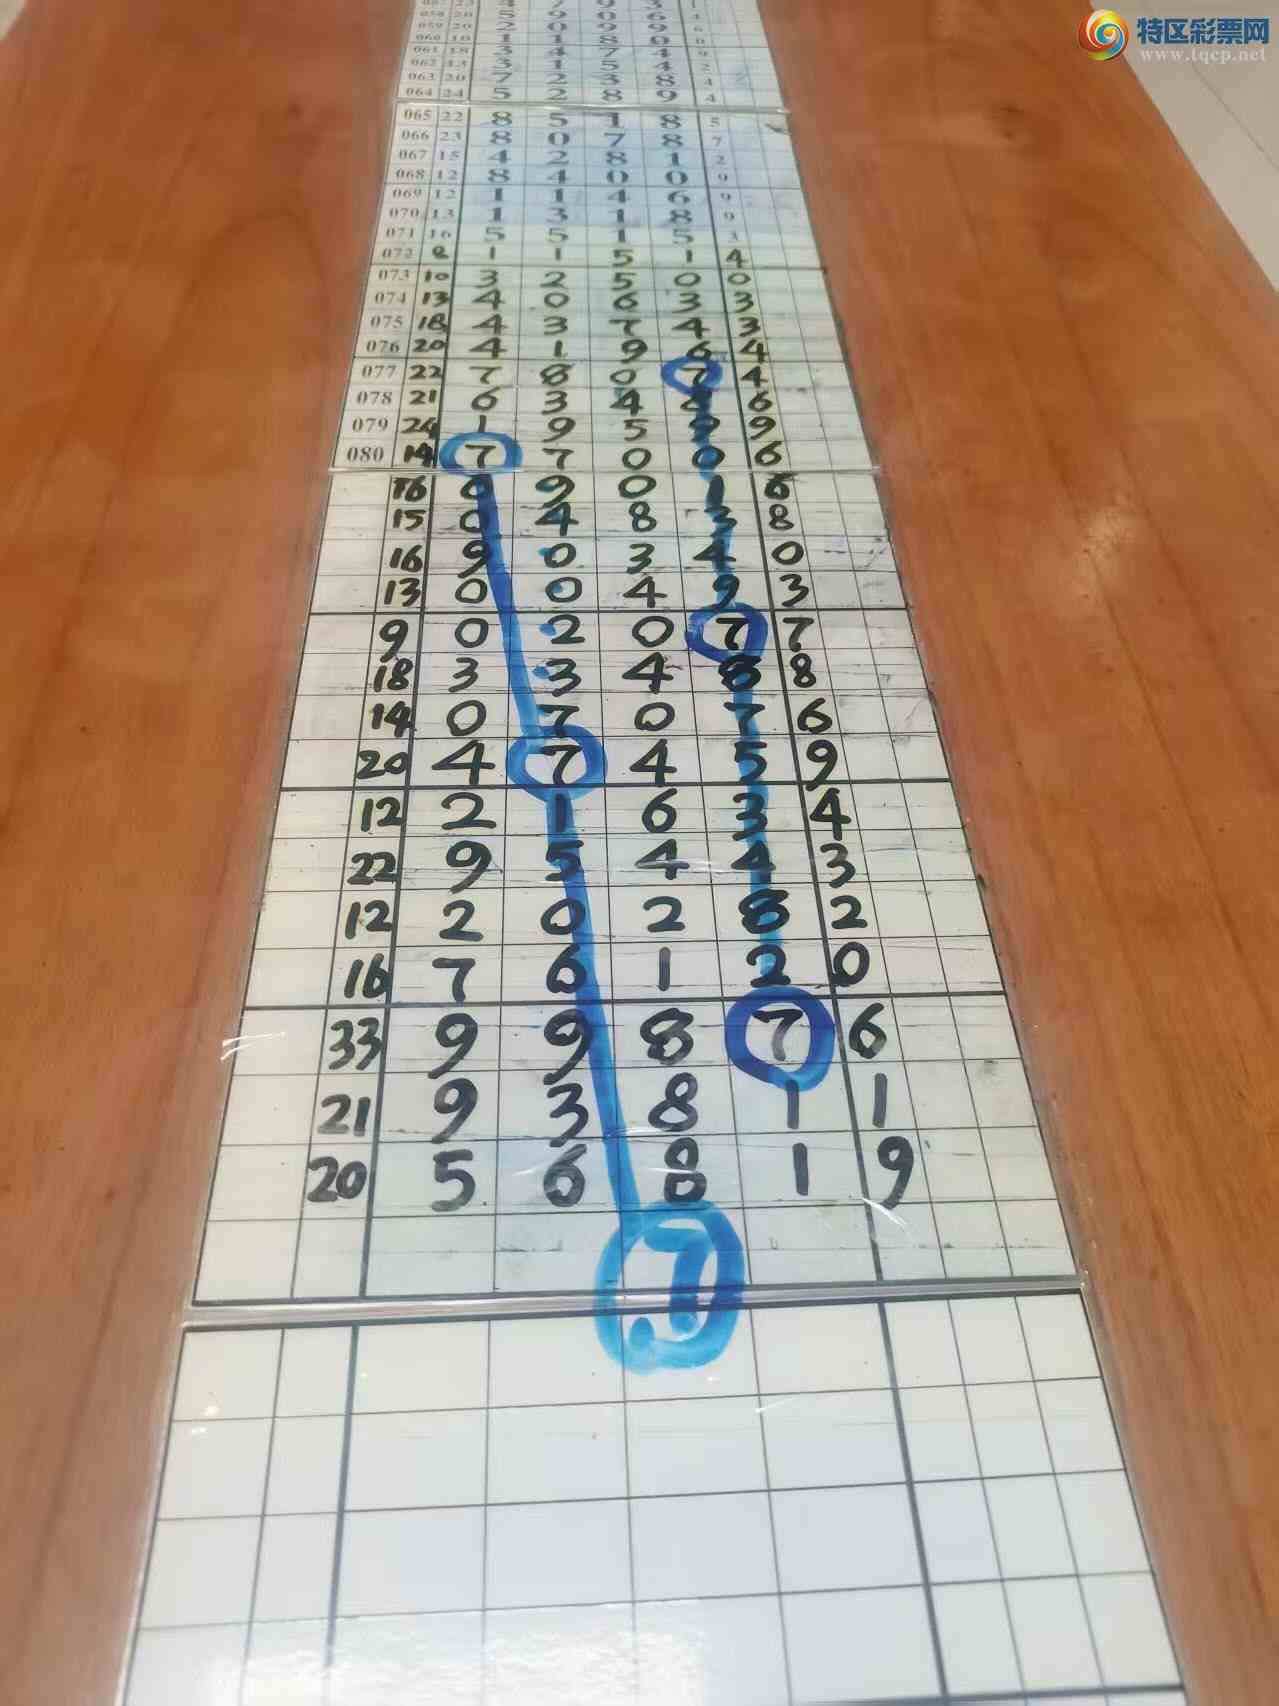 特区彩票网
www.tqcp.net
059 20 2 0 9 9 6
060 10 1 1 8 0 0
061 18 3 4 7 4 9
062 13 3 1 5 4 2
063 20 7 2 3 8 4
064 24 5 2 8 9 4
065 22 8 5 1 8 5
066 23 8 0 7 8 7
067 15 4 2 8 1 2
068 12 8 4 0 0 9
069 12 1 1 4 6 9
070 13 1 3 1 8 9
071 16 5 5 1 5 3
072 8 1 1 5 1 4
073 10 3 2 5 0 0
074 13 4 0 6 3 3
075 18 4 3 7 4 3
076 20 4 1 9 6 4
077 22 7 8 0 7 4
078 21 6 3 4 8 6
079 24 1 9 5 9 9
080 14 7 7 0 0 6
16 6 9 0 1 6
15 0 4 8 3 8
16 9 0 3 4 0
13 0 0 4 9 3
9 0 2 0 7 7
18 3 3 4 8 8
14 0 7 0 7 6
20 4 7 4 5 9
12 2 1 6 3 4
22 9 5 4 4 3
12 2 0 2 8 2
16 7 6 1 2 0
33 9 9 8 7 6
21 9 3 8 1 1
20 5 6 8 1 9
7